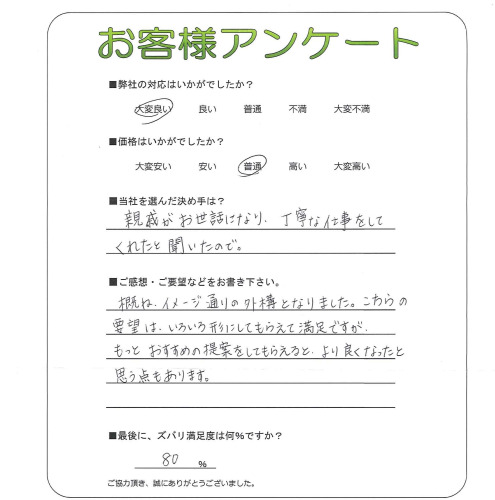 お客様アンケート
■弊社の対応はいかがでしたか？
大変良い 良い 普通 不満 大変不満
■価格はいかがでしたか？
大変安い 安い 普通 高い 大変高い
■当社を選んだ決め手は？
親戚がお世話になり、丁寧な仕事をして
くれたと聞いたので。
■ご感想・ご要望などをお書き下さい。
概ね、イメージ通りの外構となりました。こちらの
要望は、いろいろ形にしてもらえて満足ですが、
もっとおすすめの提案をしてもらえると、より良くなったと
思う点もあります。
■最後に、ズバリ満足度は何%ですか？
80 %
ご協力頂き、誠にありがとうございました。